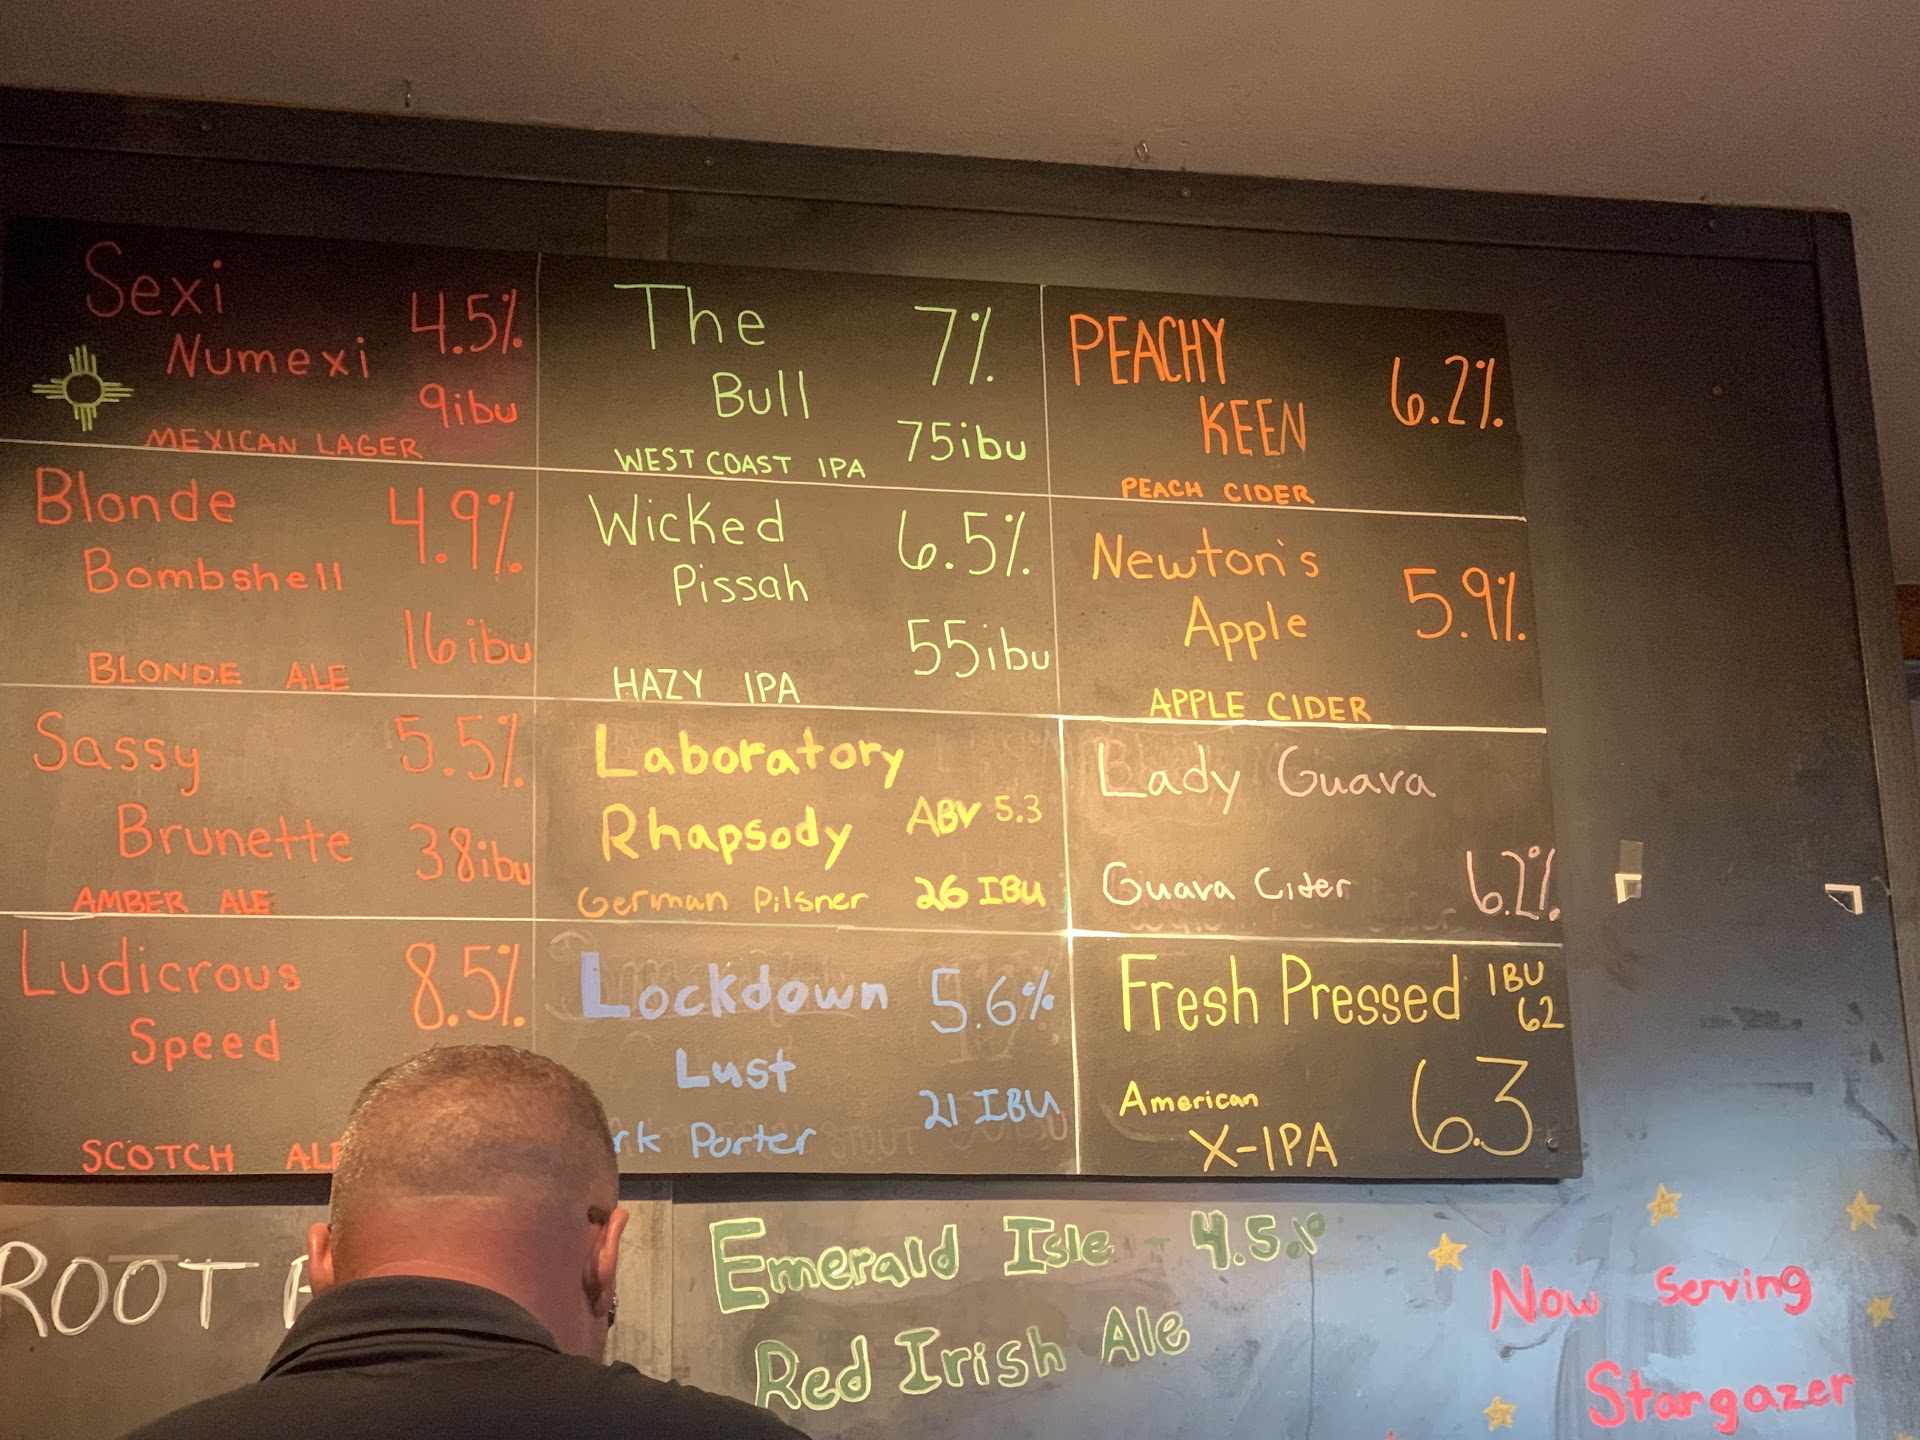 Sexi
Numexi
4.5%
9ibu
MEXICAN LAGER
The
Bull
7%
75ibu
WEST COAST IPA
PEACHY
KEEN
6.2%
PEACH CIDER
Blonde
Bombshell
4.9%
16ibu
BLONDE ALE
Wicked
Pissah
6.5%
55ibu
HAZY IPA
Newton's
Apple
5.9%
APPLE CIDER
Sassy
Brunette
5.5%
38ibu
AMBER ALE
Laboratory
Rhapsody
ABV 5.3
German Pilsner
26 IBU
Lady Guava
Guava Cider
6.2%
Ludicrous
Speed
8.5%
SCOTCH
Lockdown
Lust
5.6%
21 IBU
rk Porter
Fresh Pressed
IBU
62
American
X-IPA
6.3
ROOT
Emerald Isle - 4.5%
Red Irish Ale
Now Serving
Stargazer